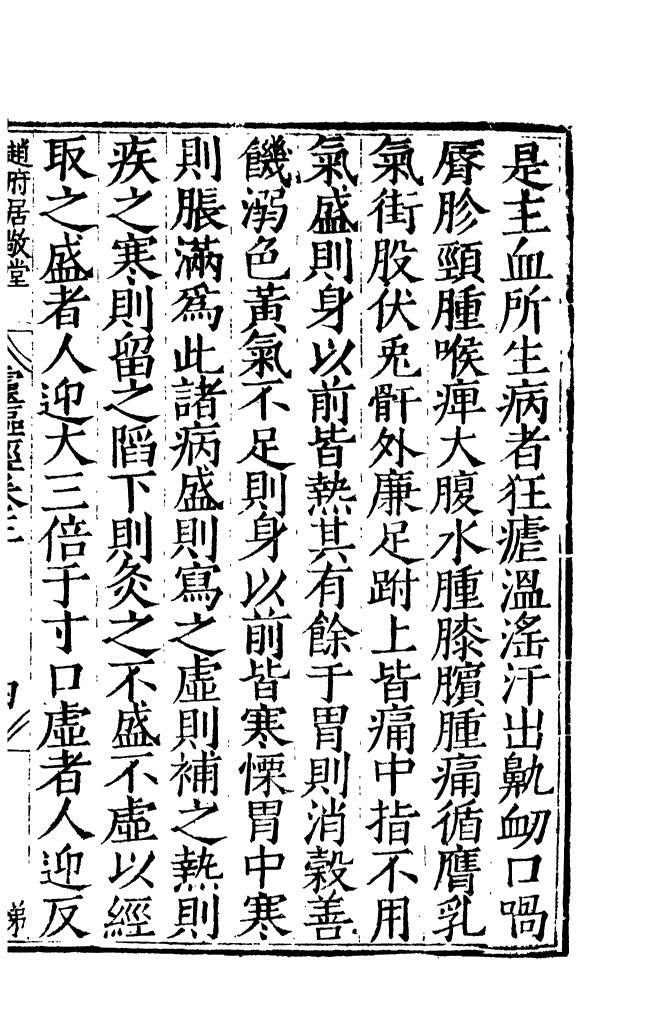 是主血所生病者狂瘧溫淫汗出鼽衂口喎
脣胗頸腫喉痺大腹水腫膝臏腫痛循膺乳
氣街股伏兎骭外廉足跗上皆痛中指不用
氣盛則身以前皆熱其有餘于胃則消穀善
饑溺色黃氣不足則身以前皆寒慄胃中寒
則脹滿爲此諸病盛則寫之虛則補之熱則
疾之寒則留之陷下則灸之不盛不虛以經
取之盛者人迎大三倍于寸口虛者人迎反
趙府居敬堂